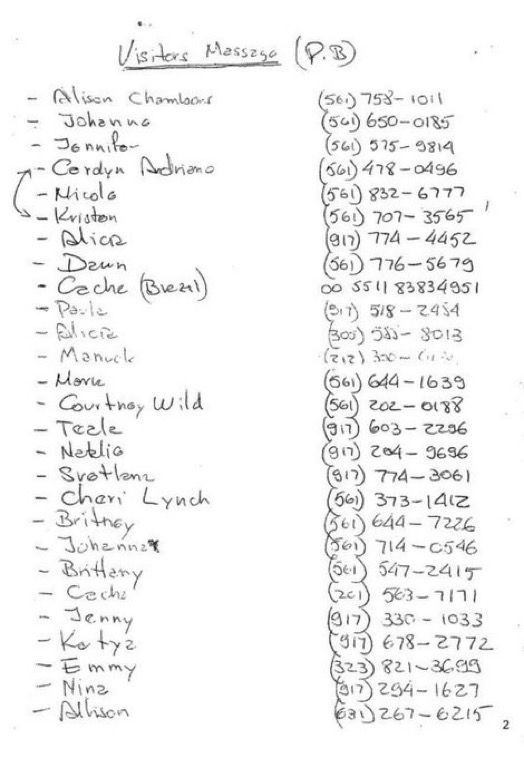 Visitors Massage (P.B)
- Alison Chambers (561) 758-1011
- Johanna (561) 650-0185
- Jennifer (561) 575-9814
- Cordyn Adriano (561) 478-0496
- Nicole (561) 832-6777
- Kristen (561) 707-3565
- Alicia (917) 774-4452
- Dawn (561) 776-5679
- Cache (Brazil) 00 5511 83834951
- Paula (917) 518-2484
- Alicia (305) 8013
- Manuele (212)
- Maria (561) 644-1639
- Courtney Wild (561) 202-0188
- Teale (917) 603-2296
- Natalia (917) 204-9696
- Svetlana (917) 774-3061
- Cheri Lynch (561) 373-1412
- Britney (561) 644-7226
- Johanna (561) 714-0546
- Brittany (561) 547-2415
- Cache (201) 563-7171
- Jenny (917) 330-1033
- Katya (917) 678-2772
- Emmy (323) 821-3699
- Nina (917) 294-1627
- Allison (631) 267-6215
2